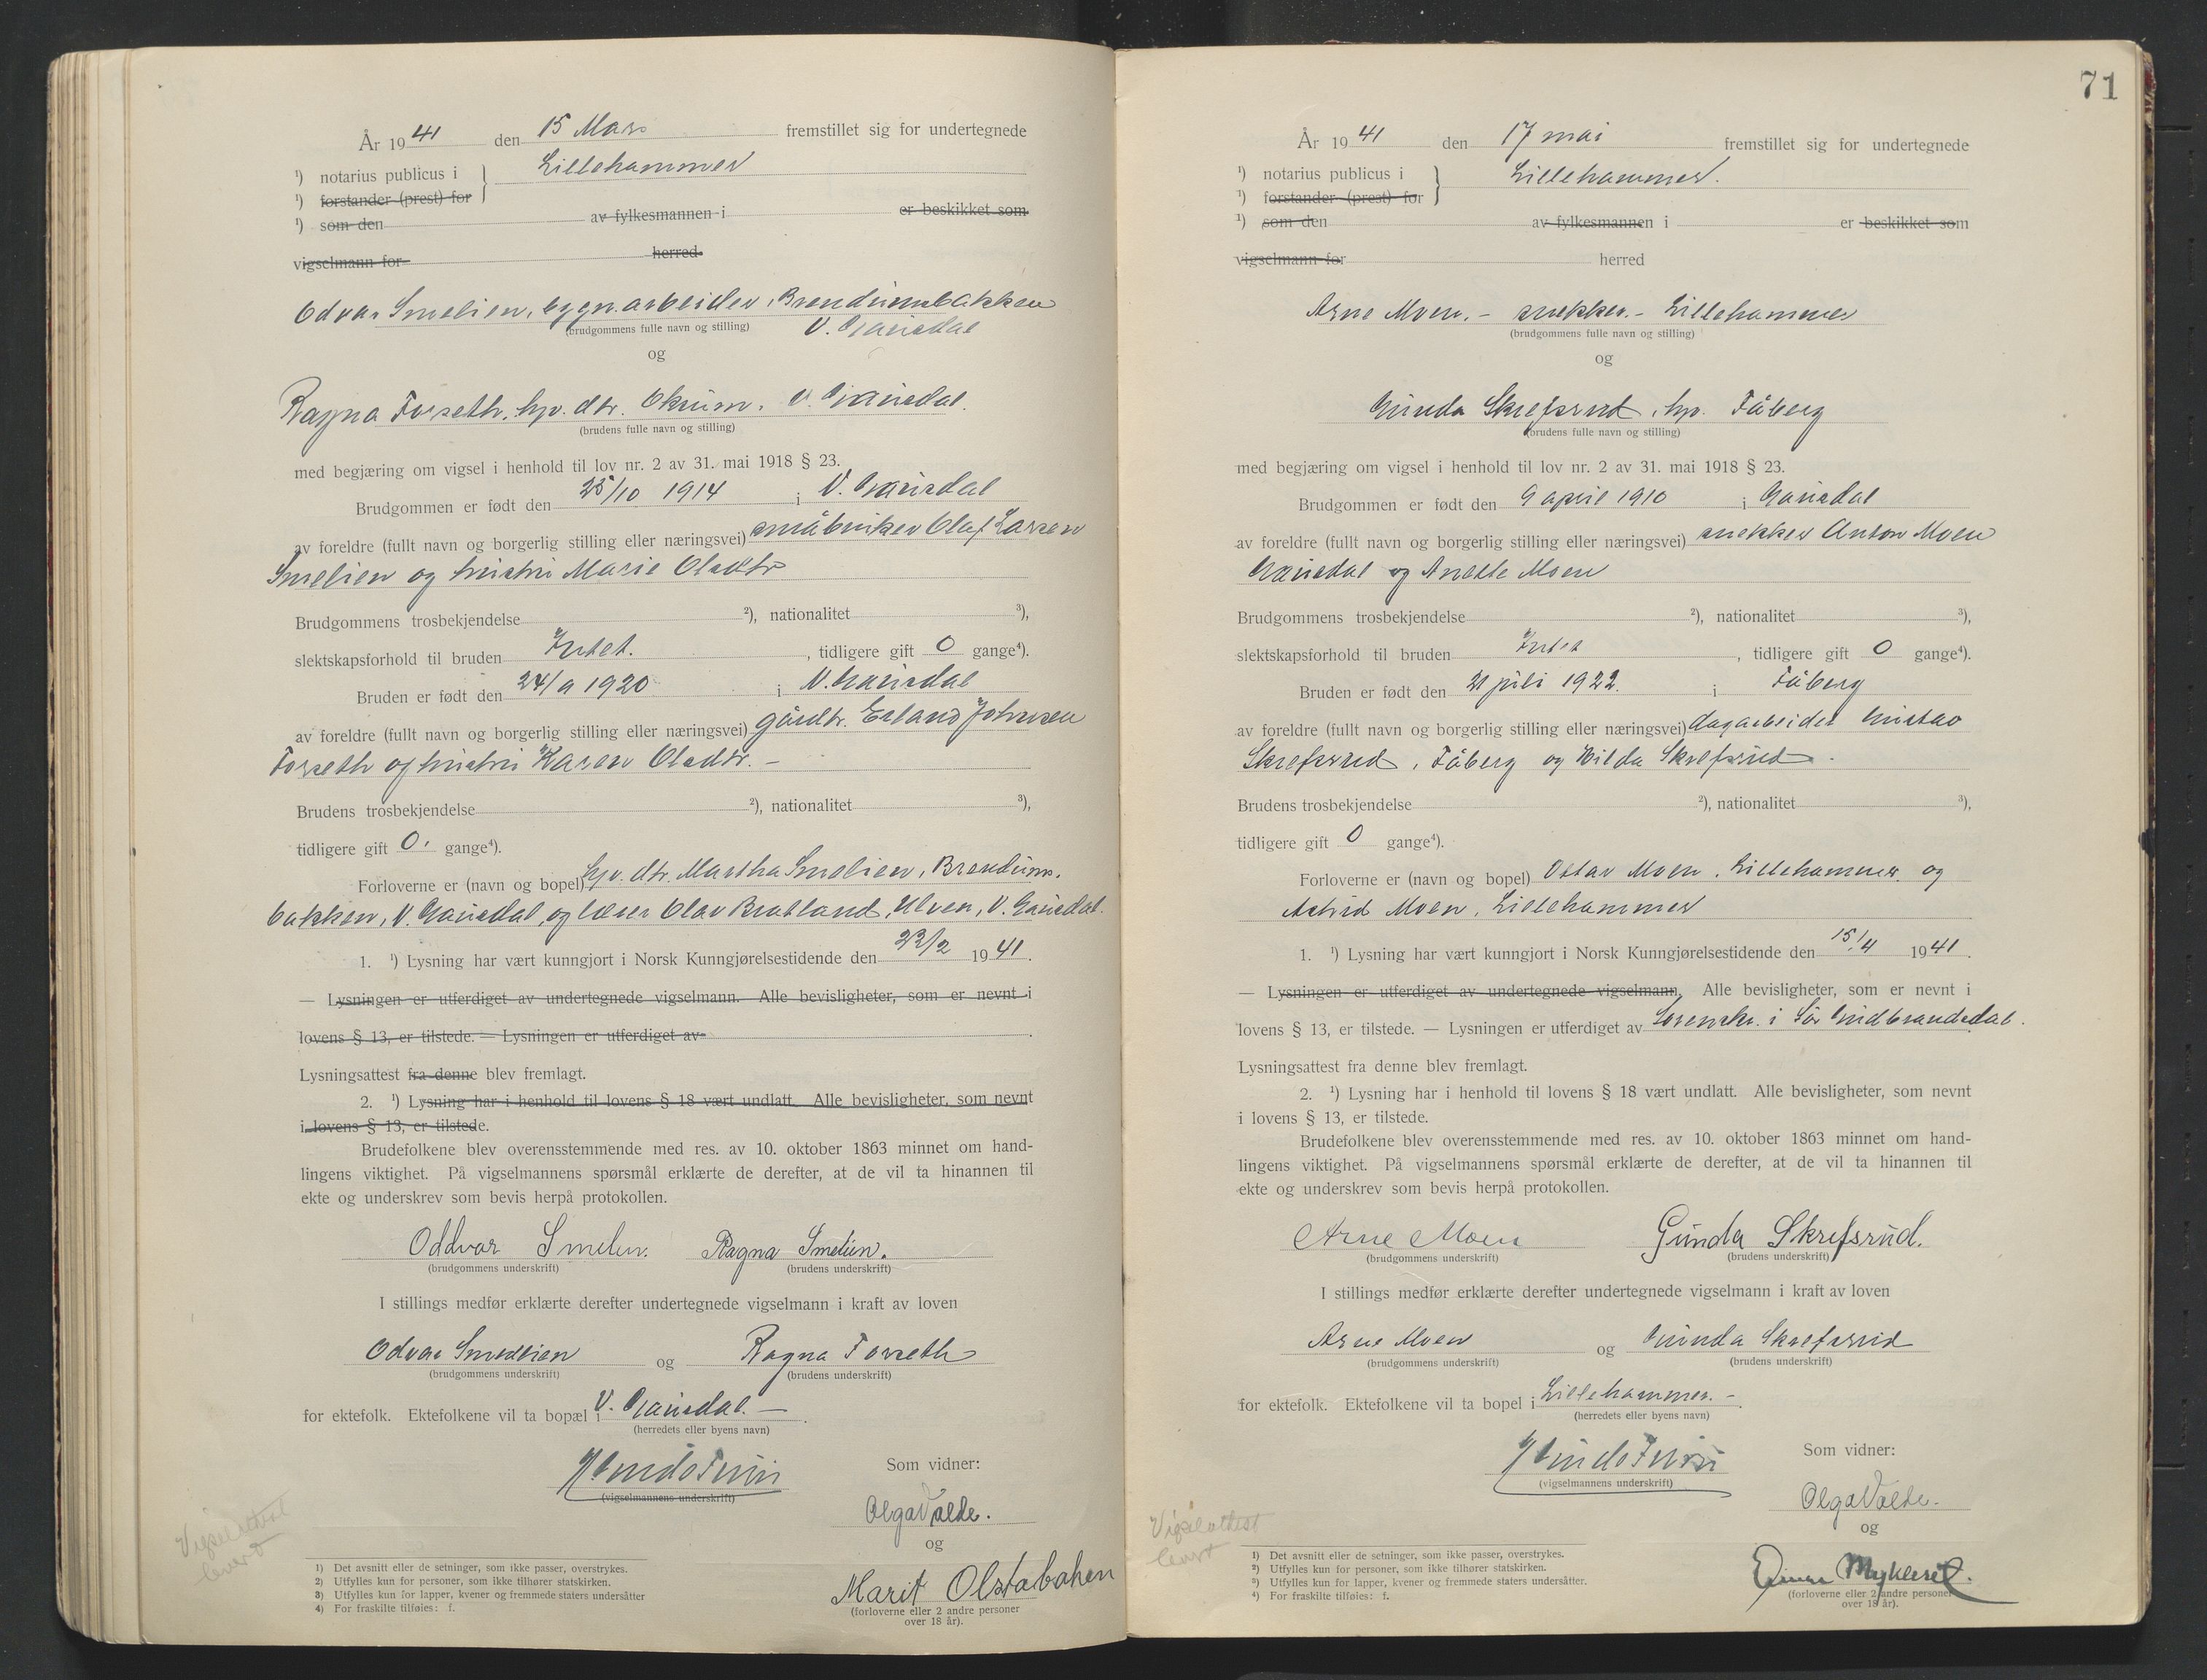 År 1941 den 15 Mars fremstillet sig for undertegnede
¹) notarius publicus i } Lillehammer
¹) forstander (prest) for
¹) som den av fylkesmannen i er beskikket som
vigselmann for herred
Odvar Smelien, bygn.arbeider, Brendumsbakken
(brudgommens fulle navn og stilling) V. Gausdal
og
Ragna Forseth, hp. dtr. V. Gausdal.
(brudens fulle navn og stilling)
med begjæring om vigsel i henhold til lov nr. 2 av 31. mai 1918 § 23.
Brudgommen er født den 25/10 1914 i V. Gausdal
av foreldre (fullt navn og borgerlig stilling eller næringsvei) småbruker Olaf Larsen
Smelien og hustru Marie Olsdtr
Brudgommens trosbekjendelse ²), nationalitet ³),
slektskapsforhold til bruden Intet. , tidligere gift 0 gange⁴).
Bruden er født den 24/9 1920 i V. Gausdal
av foreldre (fullt navn og borgerlig stilling eller næringsvei) gårdbr. Erland Johnsen
Forseth og hustru Karen Olsdtr. -
Brudens trosbekjendelse ²), nationalitet ³),
tidligere gift 0. gange⁴).
Forloverne er (navn og bopel) hp. dtr. Martha Smelien, Brendums-
bakken, V. Gausdal, og lærer Olav Bratland, Ulven, V. Gausdal.
1. ¹) Lysning har vært kunngjort i Norsk Kunngjørelsestidende den 22/2 1941.
— Lysningen er utferdiget av undertegnede vigselmann. Alle bevisligheter, som er nevnt i
lovens § 13, er tilstede. — Lysningen er utferdiget av .
Lysningsattest fra denne blev fremlagt.
2. ¹) Lysning har i henhold til lovens § 18 vært undlatt. Alle bevisligheter, som nevnt
i lovens § 13, er tilstede.
Brudefolkene blev overensstemmende med res. av 10. oktober 1863 minnet om hand-
lingens viktighet. På vigselmannens spørsmål erklærte de derefter, at de vil ta hinannen til
ekte og underskrev som bevis herpå protokollen.
Oddvar Smelien. Ragna Smelien.
(brudgommens underskrift) (brudens underskrift)
I stillings medfør erklærte derefter undertegnede vigselmann i kraft av loven
Odvar Smedlien og Ragna Forseth
(brudgommens underskrift) (brudens underskrift)
for ektefolk. Ektefolkene vil ta bopæl i V. Gausdal. —
(herredets eller byens navn)
(vigselmannens underskrift)
Som vidner:
Olga Valde.
og
Marit Olstabakken
(forloverne eller 2 andre personer
over 18 år).
Vigselattest
levert
1) Det avsnitt eller de setninger, som ikke passer, overstrykes.
2) Utfylles kun for personer, som ikke tilhører statskirken.
3) Utfylles kun for lapper, kvener og fremmede staters undersåtter
4) For fraskilte tilføies: f.
71
År 1941 den 17 mai fremstillet sig for undertegnede
¹) notarius publicus i } Lillehammer.
¹) forstander (prest) for
¹) som den av fylkesmannen i er beskikket som
vigselmann for herred
Arne Moen. - snekker. - Lillehammer
(brudgommens fulle navn og stilling)
og
Gunda Skrefsrud, hp. Fåberg
(brudens fulle navn og stilling)
med begjæring om vigsel i henhold til lov nr. 2 av 31. mai 1918 § 23.
Brudgommen er født den 9 april 1910 i Gausdal
av foreldre (fullt navn og borgerlig stilling eller næringsvei) snekker Anton Moen
Gausdal og Anette Moen
Brudgommens trosbekjendelse ²), nationalitet ³),
slektskapsforhold til bruden Intet , tidligere gift 0 gange⁴).
Bruden er født den 21 juli 1922. i Fåberg
av foreldre (fullt navn og borgerlig stilling eller næringsvei) dagarbeider Gustav
Skrefsrud, Fåberg og Hilda Skrefsrud.
Brudens trosbekjendelse ²), nationalitet ³),
tidligere gift 0 gange⁴).
Forloverne er (navn og bopel) Ottar Moen, Lillehammer og
Astrid Moen, Lillehammer
1. ¹) Lysning har vært kunngjort i Norsk Kunngjørelsestidende den 15/4 1941.
— Lysningen er utferdiget av undertegnede vigselmann. Alle bevisligheter, som er nevnt i
lovens § 13, er tilstede. — Lysningen er utferdiget av Sorenskr. i Sør Gudbrandsdal.
Lysningsattest fra denne blev fremlagt.
2. ¹) Lysning har i henhold til lovens § 18 vært undlatt. Alle bevisligheter, som nevnt
i lovens § 13, er tilstede.
Brudefolkene blev overensstemmende med res. av 10. oktober 1863 minnet om hand-
lingens viktighet. På vigselmannens spørsmål erklærte de derefter, at de vil ta hinannen til
ekte og underskrev som bevis herpå protokollen.
Arne Moen Gunda Skrefsrud.
(brudgommens underskrift) (brudens underskrift)
I stillings medfør erklærte derefter undertegnede vigselmann i kraft av loven
Arne Moen og Gunda Skrefsrud
(brudgommens underskrift) (brudens underskrift)
for ektefolk. Ektefolkene vil ta bopel i Lillehammer. -
(herredets eller byens navn)
(vigselmannens underskrift)
Som vidner:
Olga Valde.
og
(forloverne eller 2 andre personer
over 18 år).
Vigselattest
levert
1) Det avsnitt eller de setninger, som ikke passer, overstrykes.
2) Utfylles kun for personer, som ikke tilhører statskirken.
3) Utfylles kun for lapper, kvener og fremmede staters undersåtter.
4) For fraskilte tilføies: f.